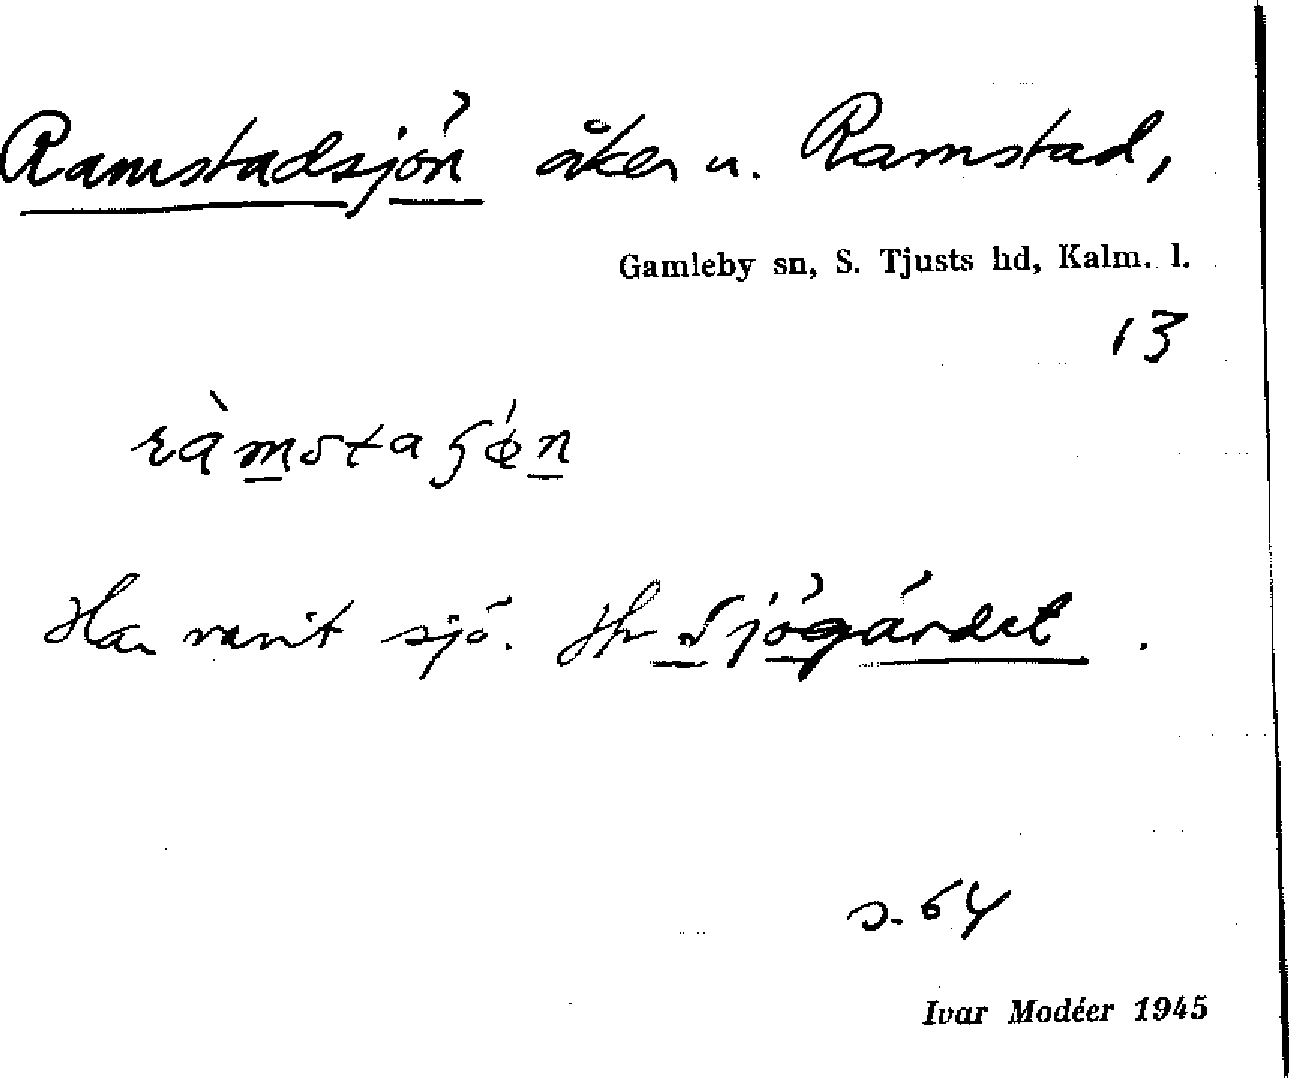 Ramstadsjön åker u. Ramstad,
Gamleby sn, S. Tjusts hd, Kalm. l.
13
ràmstaʂǿn
Har varit sjö. Jfr Sjögärdet.
s. 64
Ivar Modéer 1945